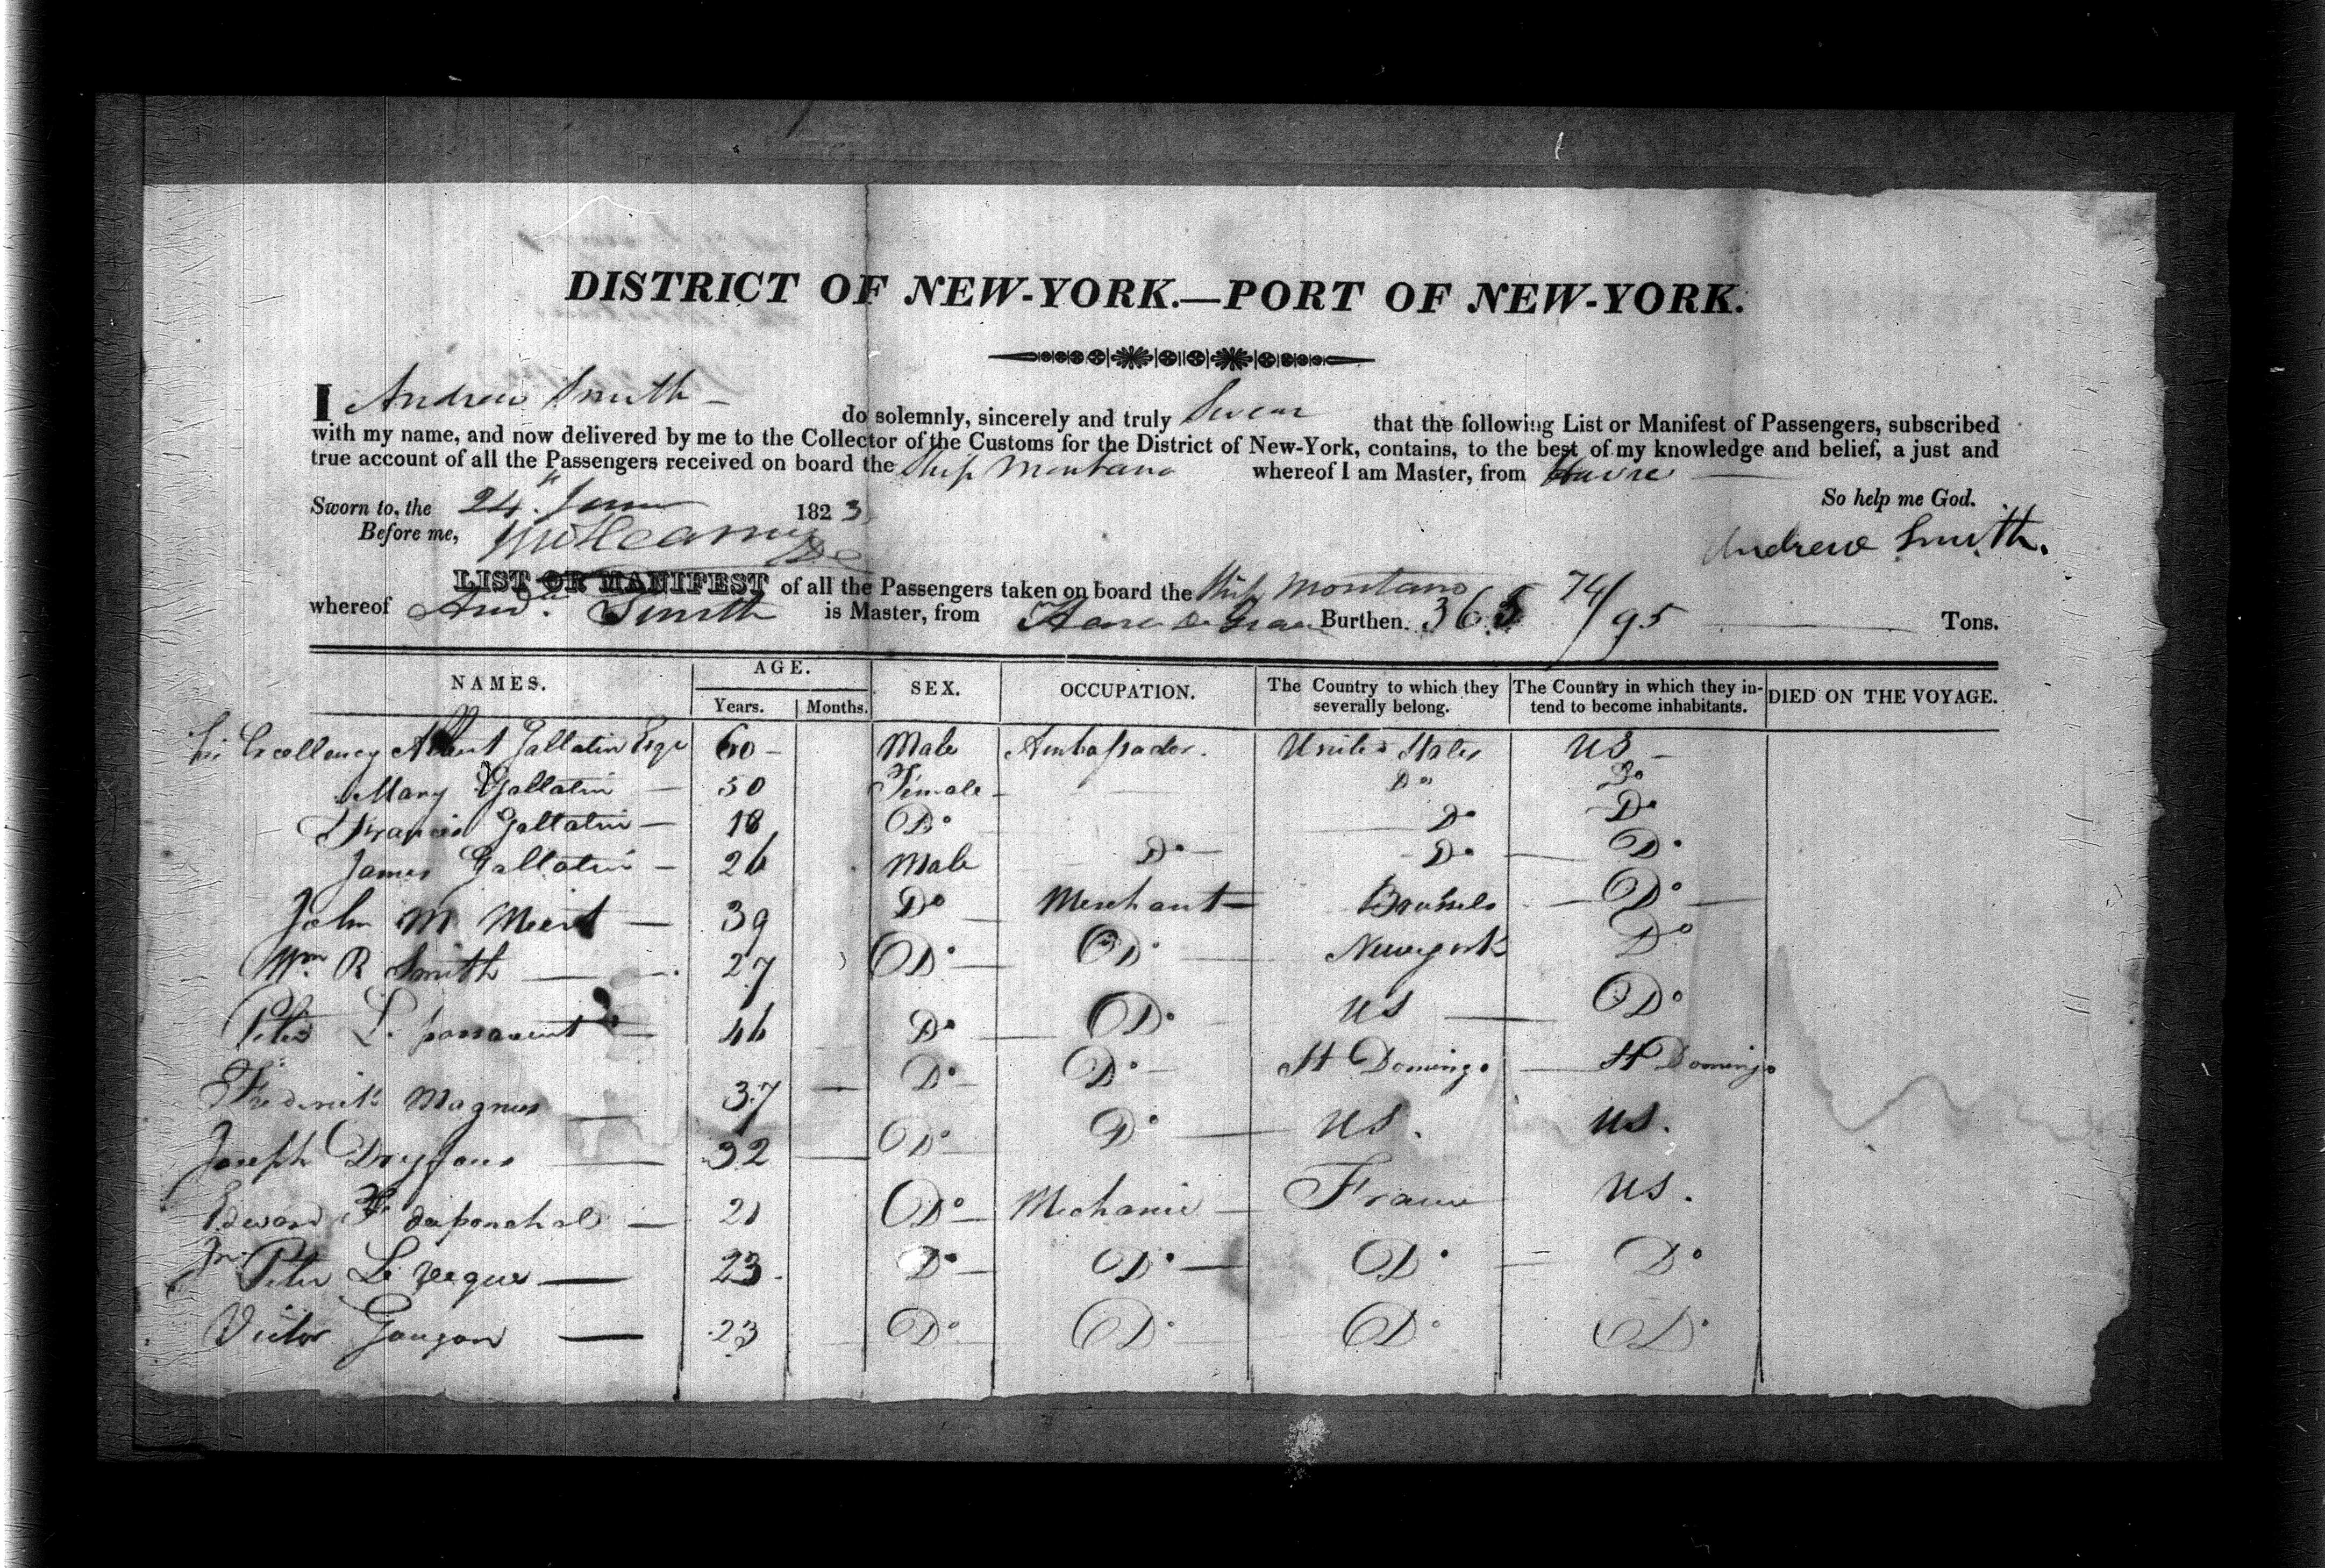 DISTRICT OF NEW-YORK.—PORT OF NEW-YORK.
I Andrew Smith – do solemnly, sincerely and truly Swear that the following List or Manifest of Passengers, subscribed
with my name, and now delivered by me to the Collector of the Customs for the District of New-York, contains, to the best of my knowledge and belief, a just and
true account of all the Passengers received on board the Ship Montano whereof I am Master, from Havre —
So help me God.
Sworn to, the 24th June 1823
Before me,
Andrew Smith.
LIST OR MANIFEST of all the Passengers taken on board the Ship Montano
whereof Andw. Smith is Master, from Havre De Grace Burthen. 365 74/95 — Tons.
NAMES. AGE. Years. Months. SEX. OCCUPATION. The Country to which they severally belong. The Country in which they intend to become inhabitants. DIED ON THE VOYAGE.
His Excellency Albert Gallatin Esqr 60 – Male Ambassador. United States US –
Mary Gallatin — 50 Female – Do Do
Francis Gallatin — 18 Do Do Do
James Gallatin – 26 Male Do – Do — Do
John M Meert — 39 Do — Merchant — Brussels — Do —
Wm R Smith — 27 Do — Do New york Do
Peter L. 46 Do — Do US — Do
Frederick Magnus — 37 — Do – Do – St Domingo — St Domingo
Joseph Dryfous — 32 — Do Do — US. US.
Edward F — 21 Do – Mechanic — France US.
Peter Le — 23. Do – Do — Do = Do
Victor Gougon — 23 Do Do Do Do